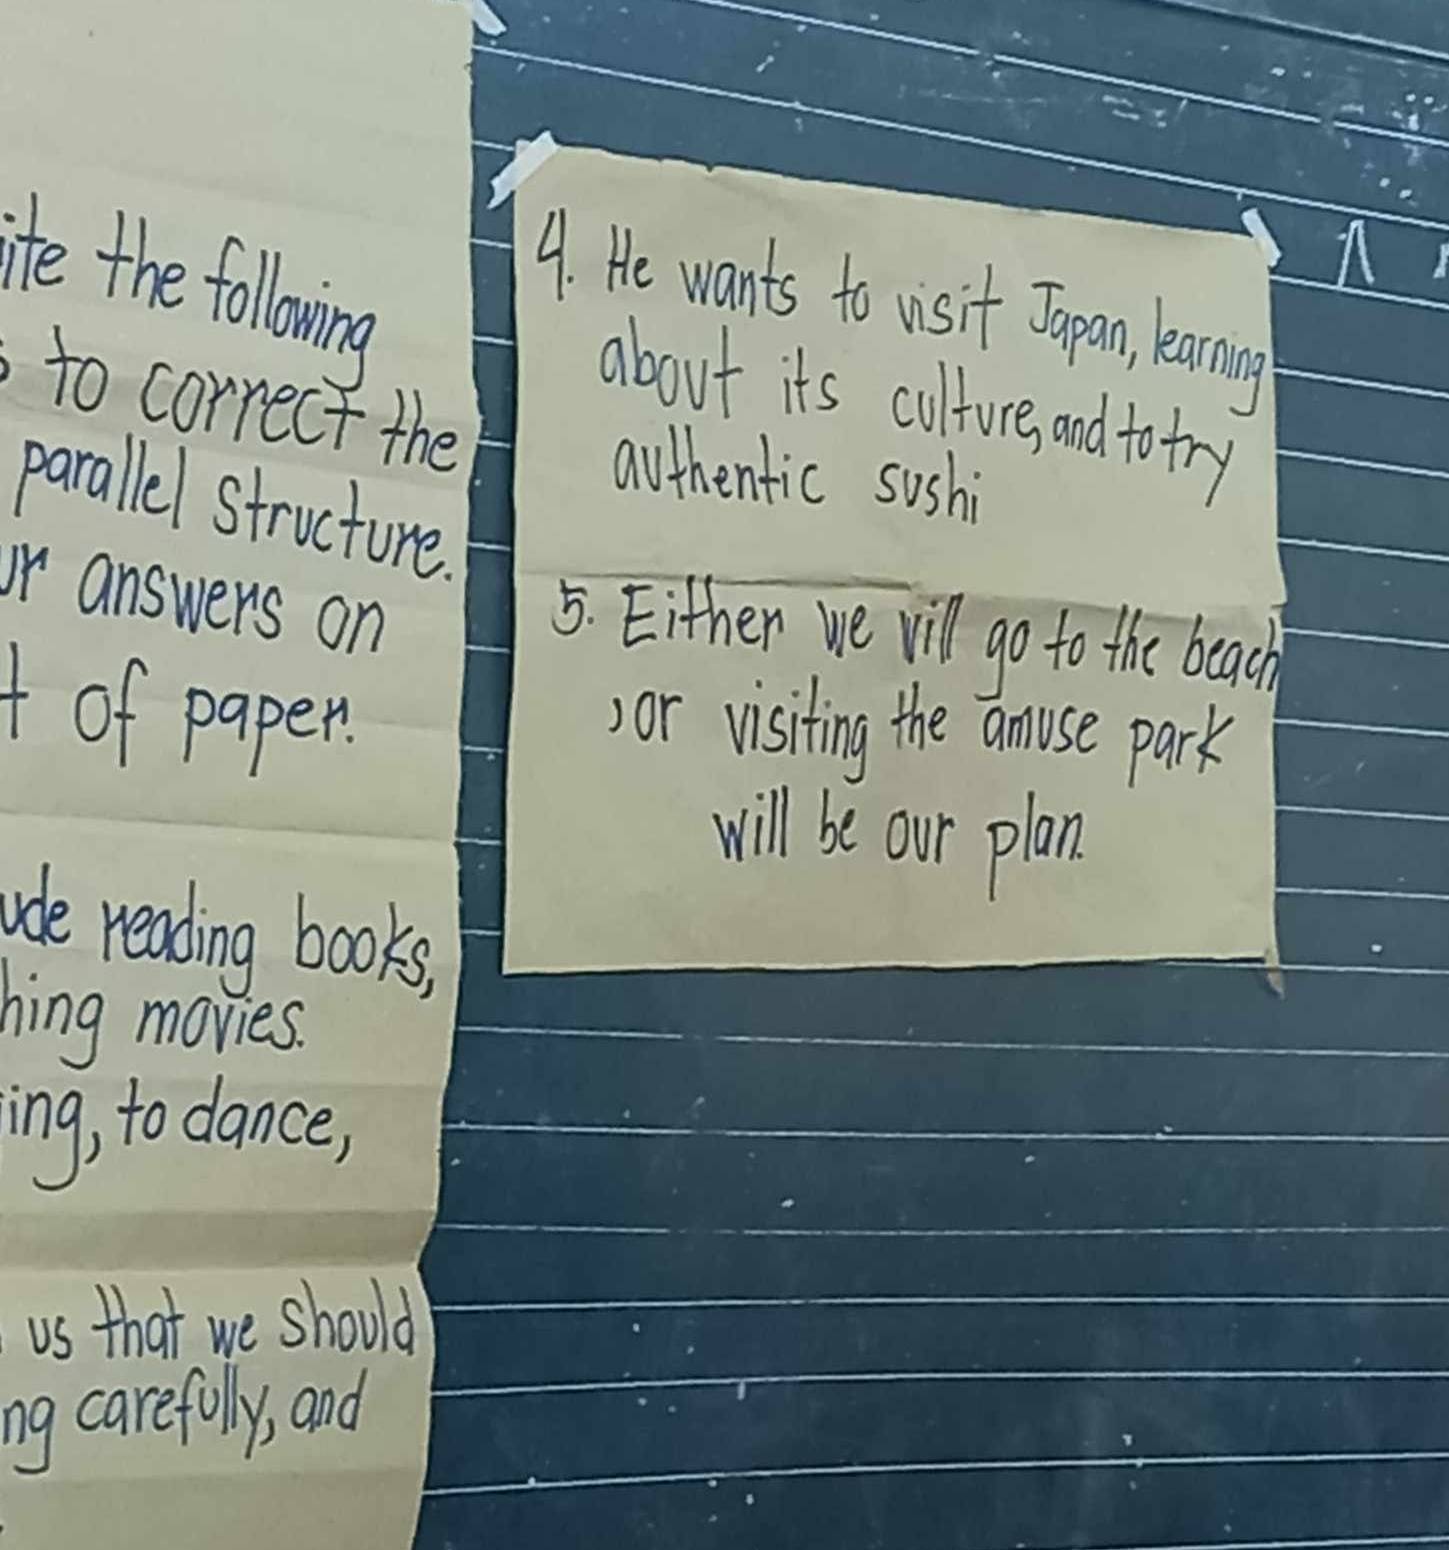 ite the following
to correct the
parallel structure.
ur answers on
t of paper.
ude reading books,
hing movies.
ing, to dance,
us that we should
ng carefully, and
4. He wants to visit Japan, learning
about its culture, and to try
authentic sushi
5. Either we will go to the beach
, or visiting the amuse park
will be our plan.